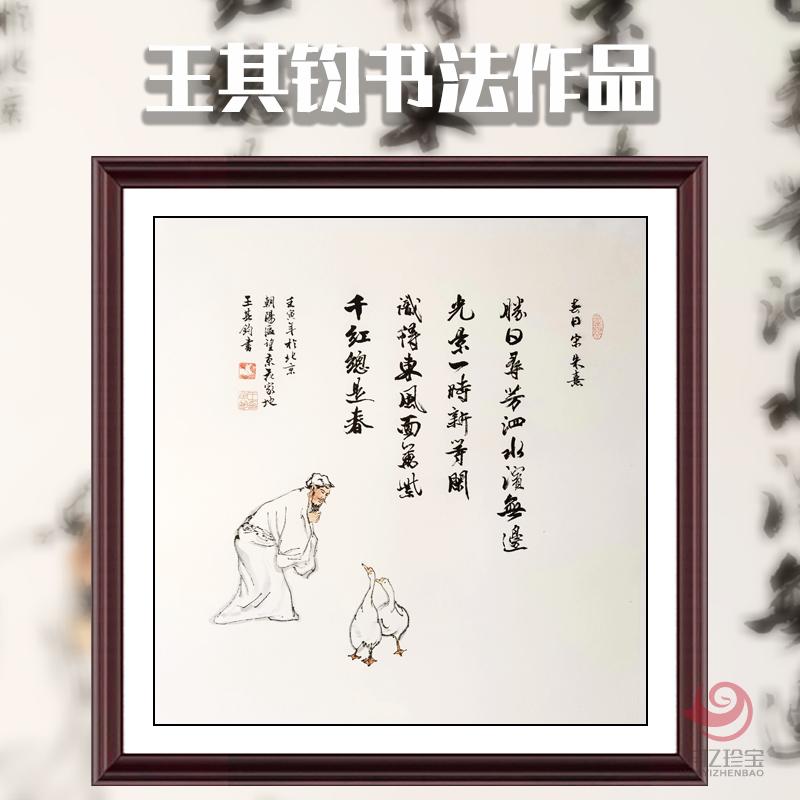 王其钧书法作品
春日 宋 朱熹
勝日尋芳泗水濱無邊
光景一時新等閑
識得東風面萬紫
千紅總是春
壬寅年於北京
朝陽區望京花家地
王其鈞書
亿珍宝
YIZHENBAO